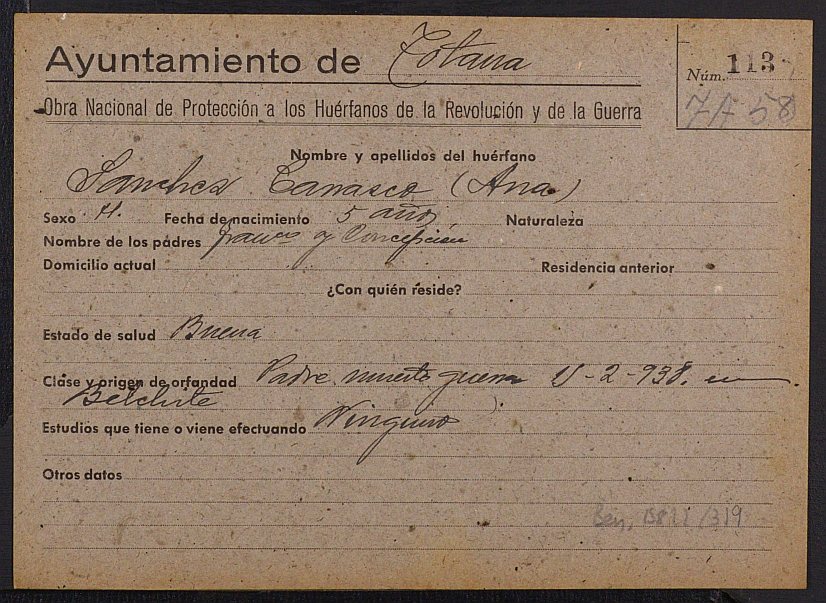 Ayuntamiento de Totana
Núm. 113
7A 58
Obra Nacional de Protección a los Huérfanos de la Revolución y de la Guerra
Nombre y apellidos del huérfano
Sanchez Carrasco (Ana)
Sexo H. Fecha de nacimiento 5 años Naturaleza
Nombre de los padres Franco y Concepción
Domicilio actual Residencia anterior
¿Con quién reside?
Estado de salud Buena
Clase y origen de orfandad Padre muerto guerra -2-938. en
Belchite
Estudios que tiene o viene efectuando Ninguno
Otros datos
/319